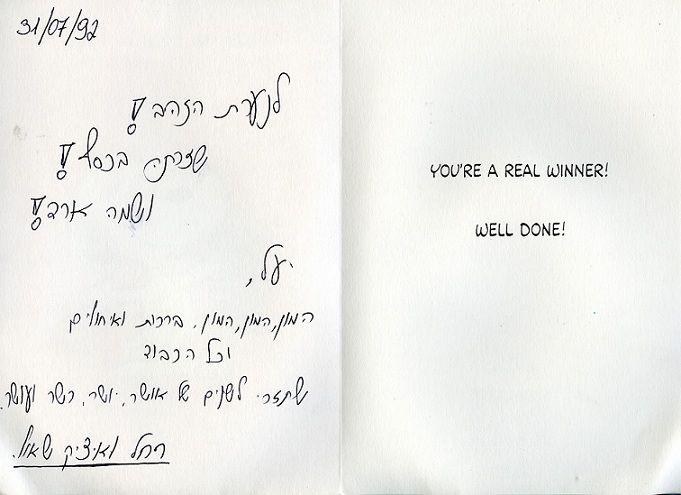 31/07/92
לנערת הזהב!
שזכתה בכסף!
ושמה ארד!
יעל,
המון, המון, המון, ברכות ואיחולים
וכל הכבוד
שתזכי לשנים של אושר, יושר, כשר ועושר.
רחל ואיציק שאול.
YOU'RE A REAL WINNER!
WELL DONE!